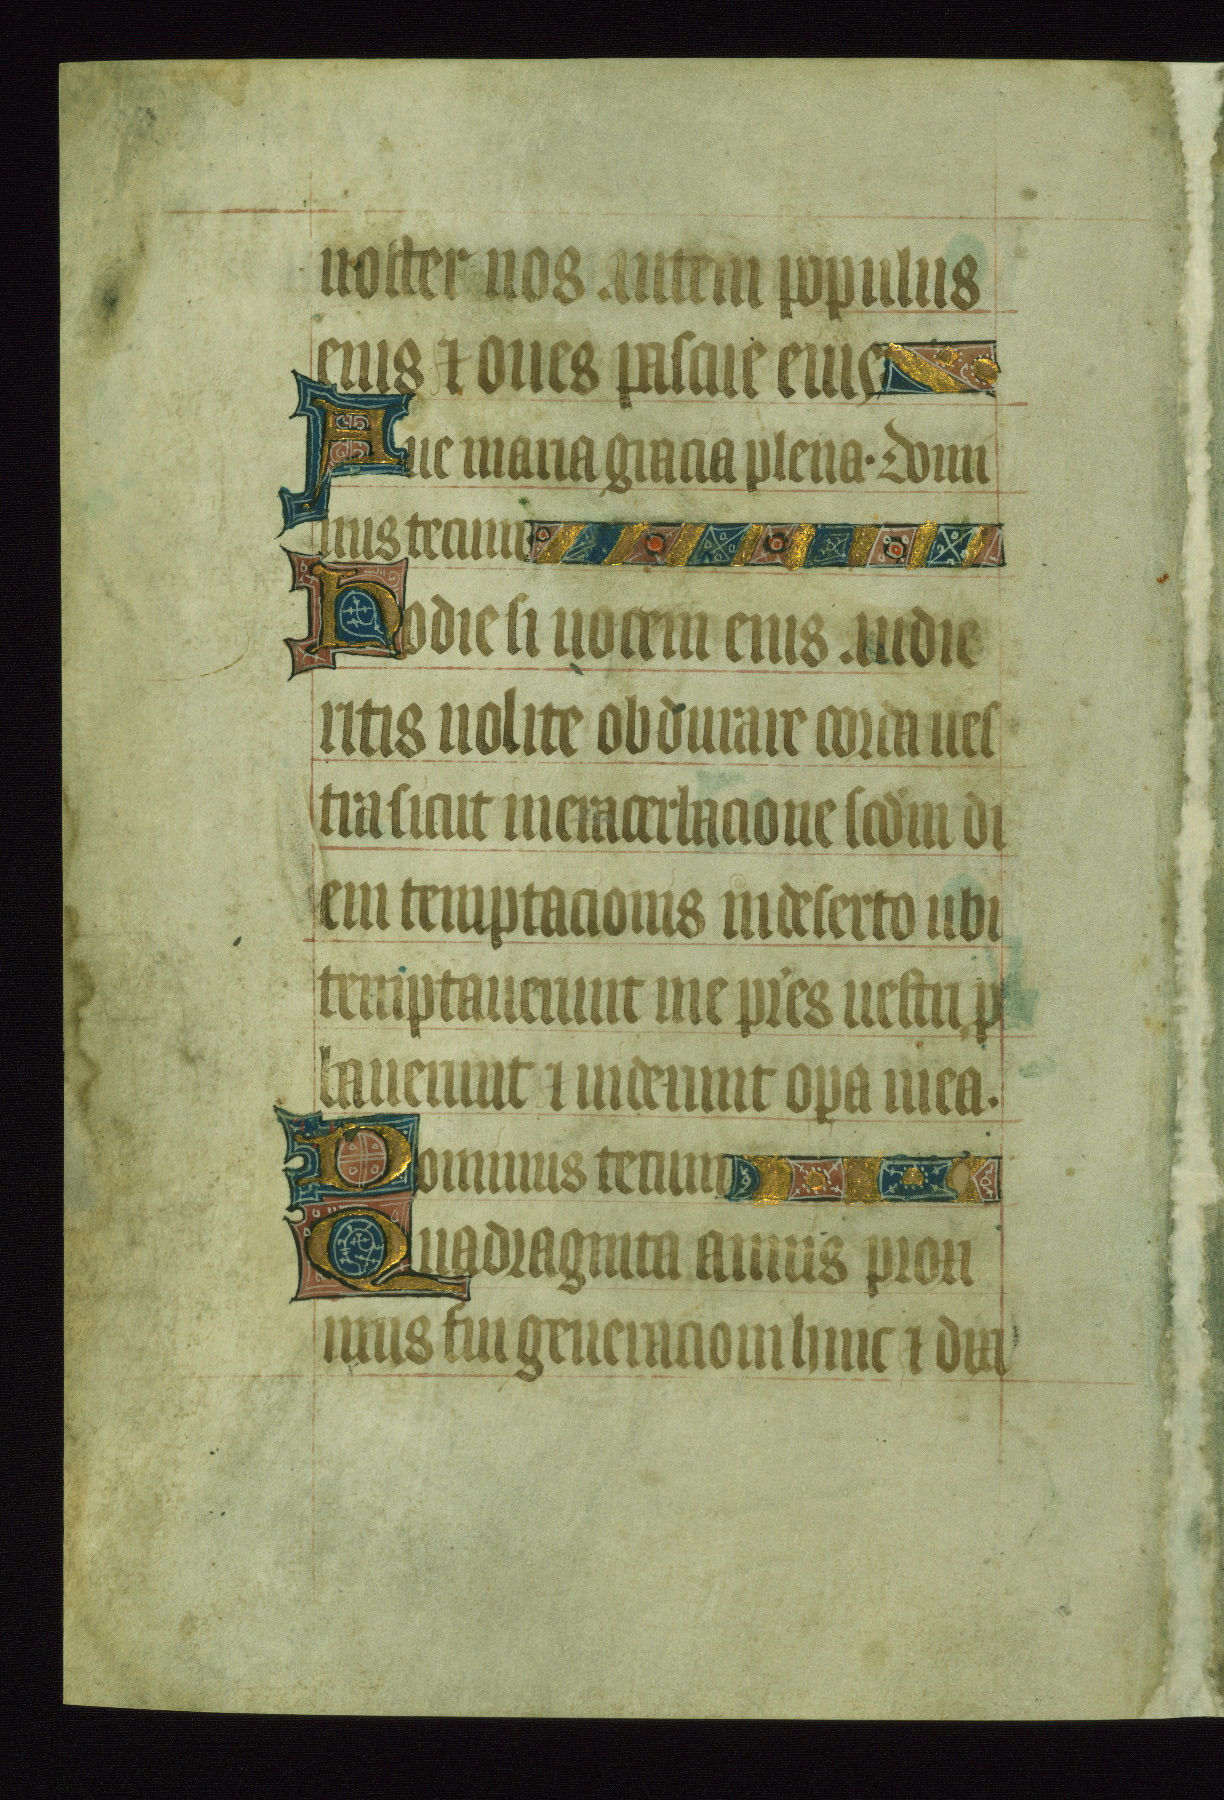 noster nos autem populus
eius ⁊ oues pascue eius
Aue maria gracia plena· Domi
nus tecum
Hodie si uocem eius audie
ritis nolite obdurare corda ues
tra sicut in exacerbacione scđm di
em temptacionis in deserto ubi
temptauerunt me pr̄es uestri p
bauerunt ⁊ uiderunt opa mea·
Dominus tecum
Quadraginta annis proxi
mus fui generacioni huic ⁊ dixi